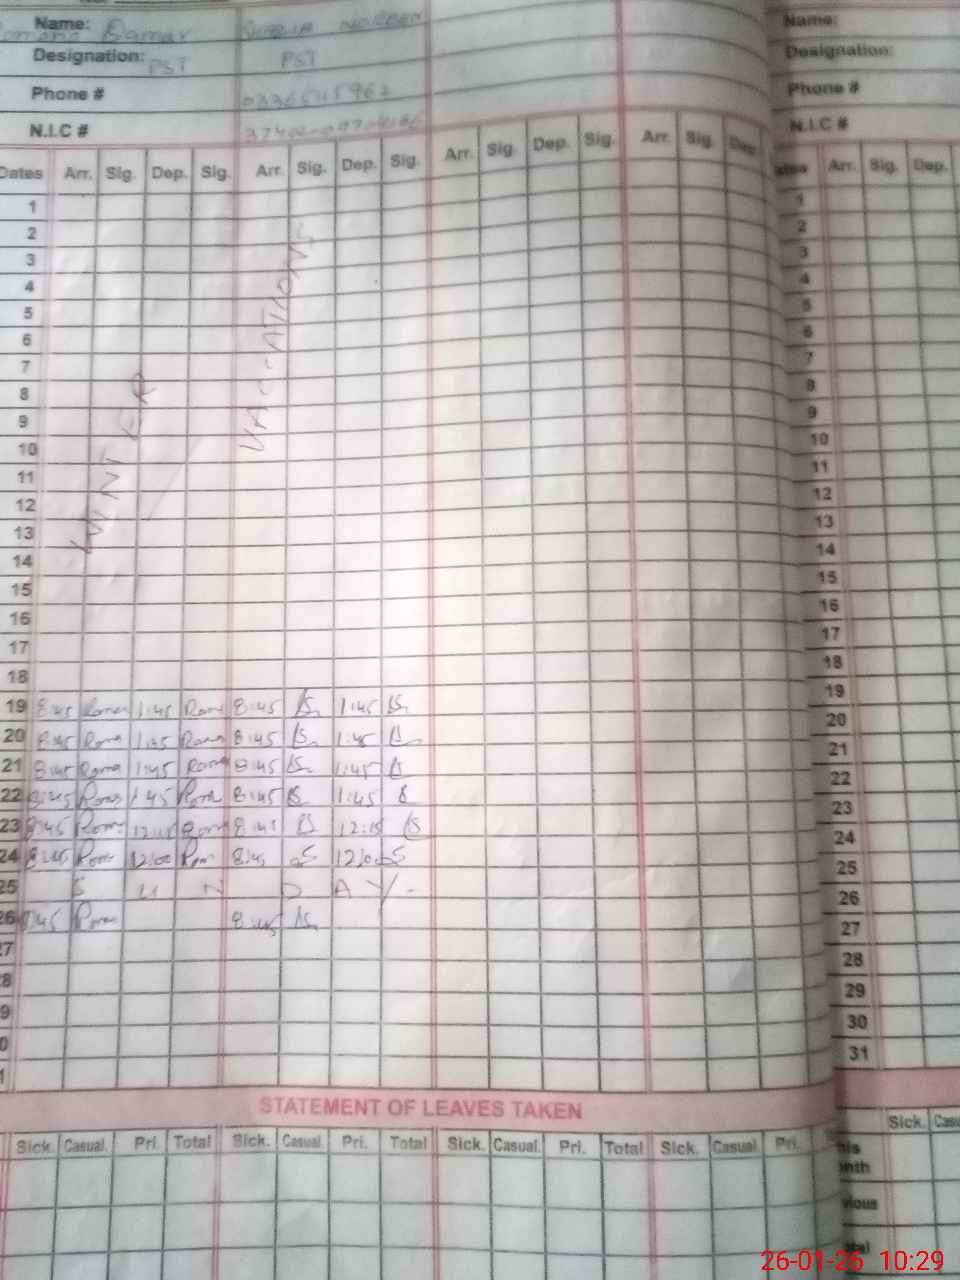 Name: Name:
Qamar
Designation: PST PST Designation:
Phone # Phone #
N.I.C # N.I.C #
Dates Arr. Sig. Dep. Sig. Arr. Sig. Dep. Sig. Arr. Sig. Dep. Sig. Arr. Sig. Dep. Arr. Sig. Dep.
1 1
2 2
3 3
4 4
5 5
6 6
7 7
8 8
9 9
10 10
11 11
12 12
13 13
14 14
15 15
16 16
17 17
18 18
WINTER VACCATIONS
19 8:45 Roman 1:45 Rom 8:45 1:45 19
20 8:45 Roma 1:45 Roma 8:45 1:45 20
21 8:45 Roma 1:45 Roma 8:45 1:45 21
22 8:45 Roma 1:45 Roma 8:45 1:45 22
23 8:45 Rom 12:15 Rom 8:45 12:15 23
24 8:45 Rom 12:00 Rom 8:45 12:00 24
25 S U N D A Y - 25
26 8:45 Roma 8:45 26
27 27
28 28
29 29
30 30
31 31
STATEMENT OF LEAVES TAKEN
Sick. Casual. Pri. Total Sick. Casual. Pri. Total Sick. Casual. Pri. Total Sick. Casual. Pri. Sick.
26-01-26 10:29